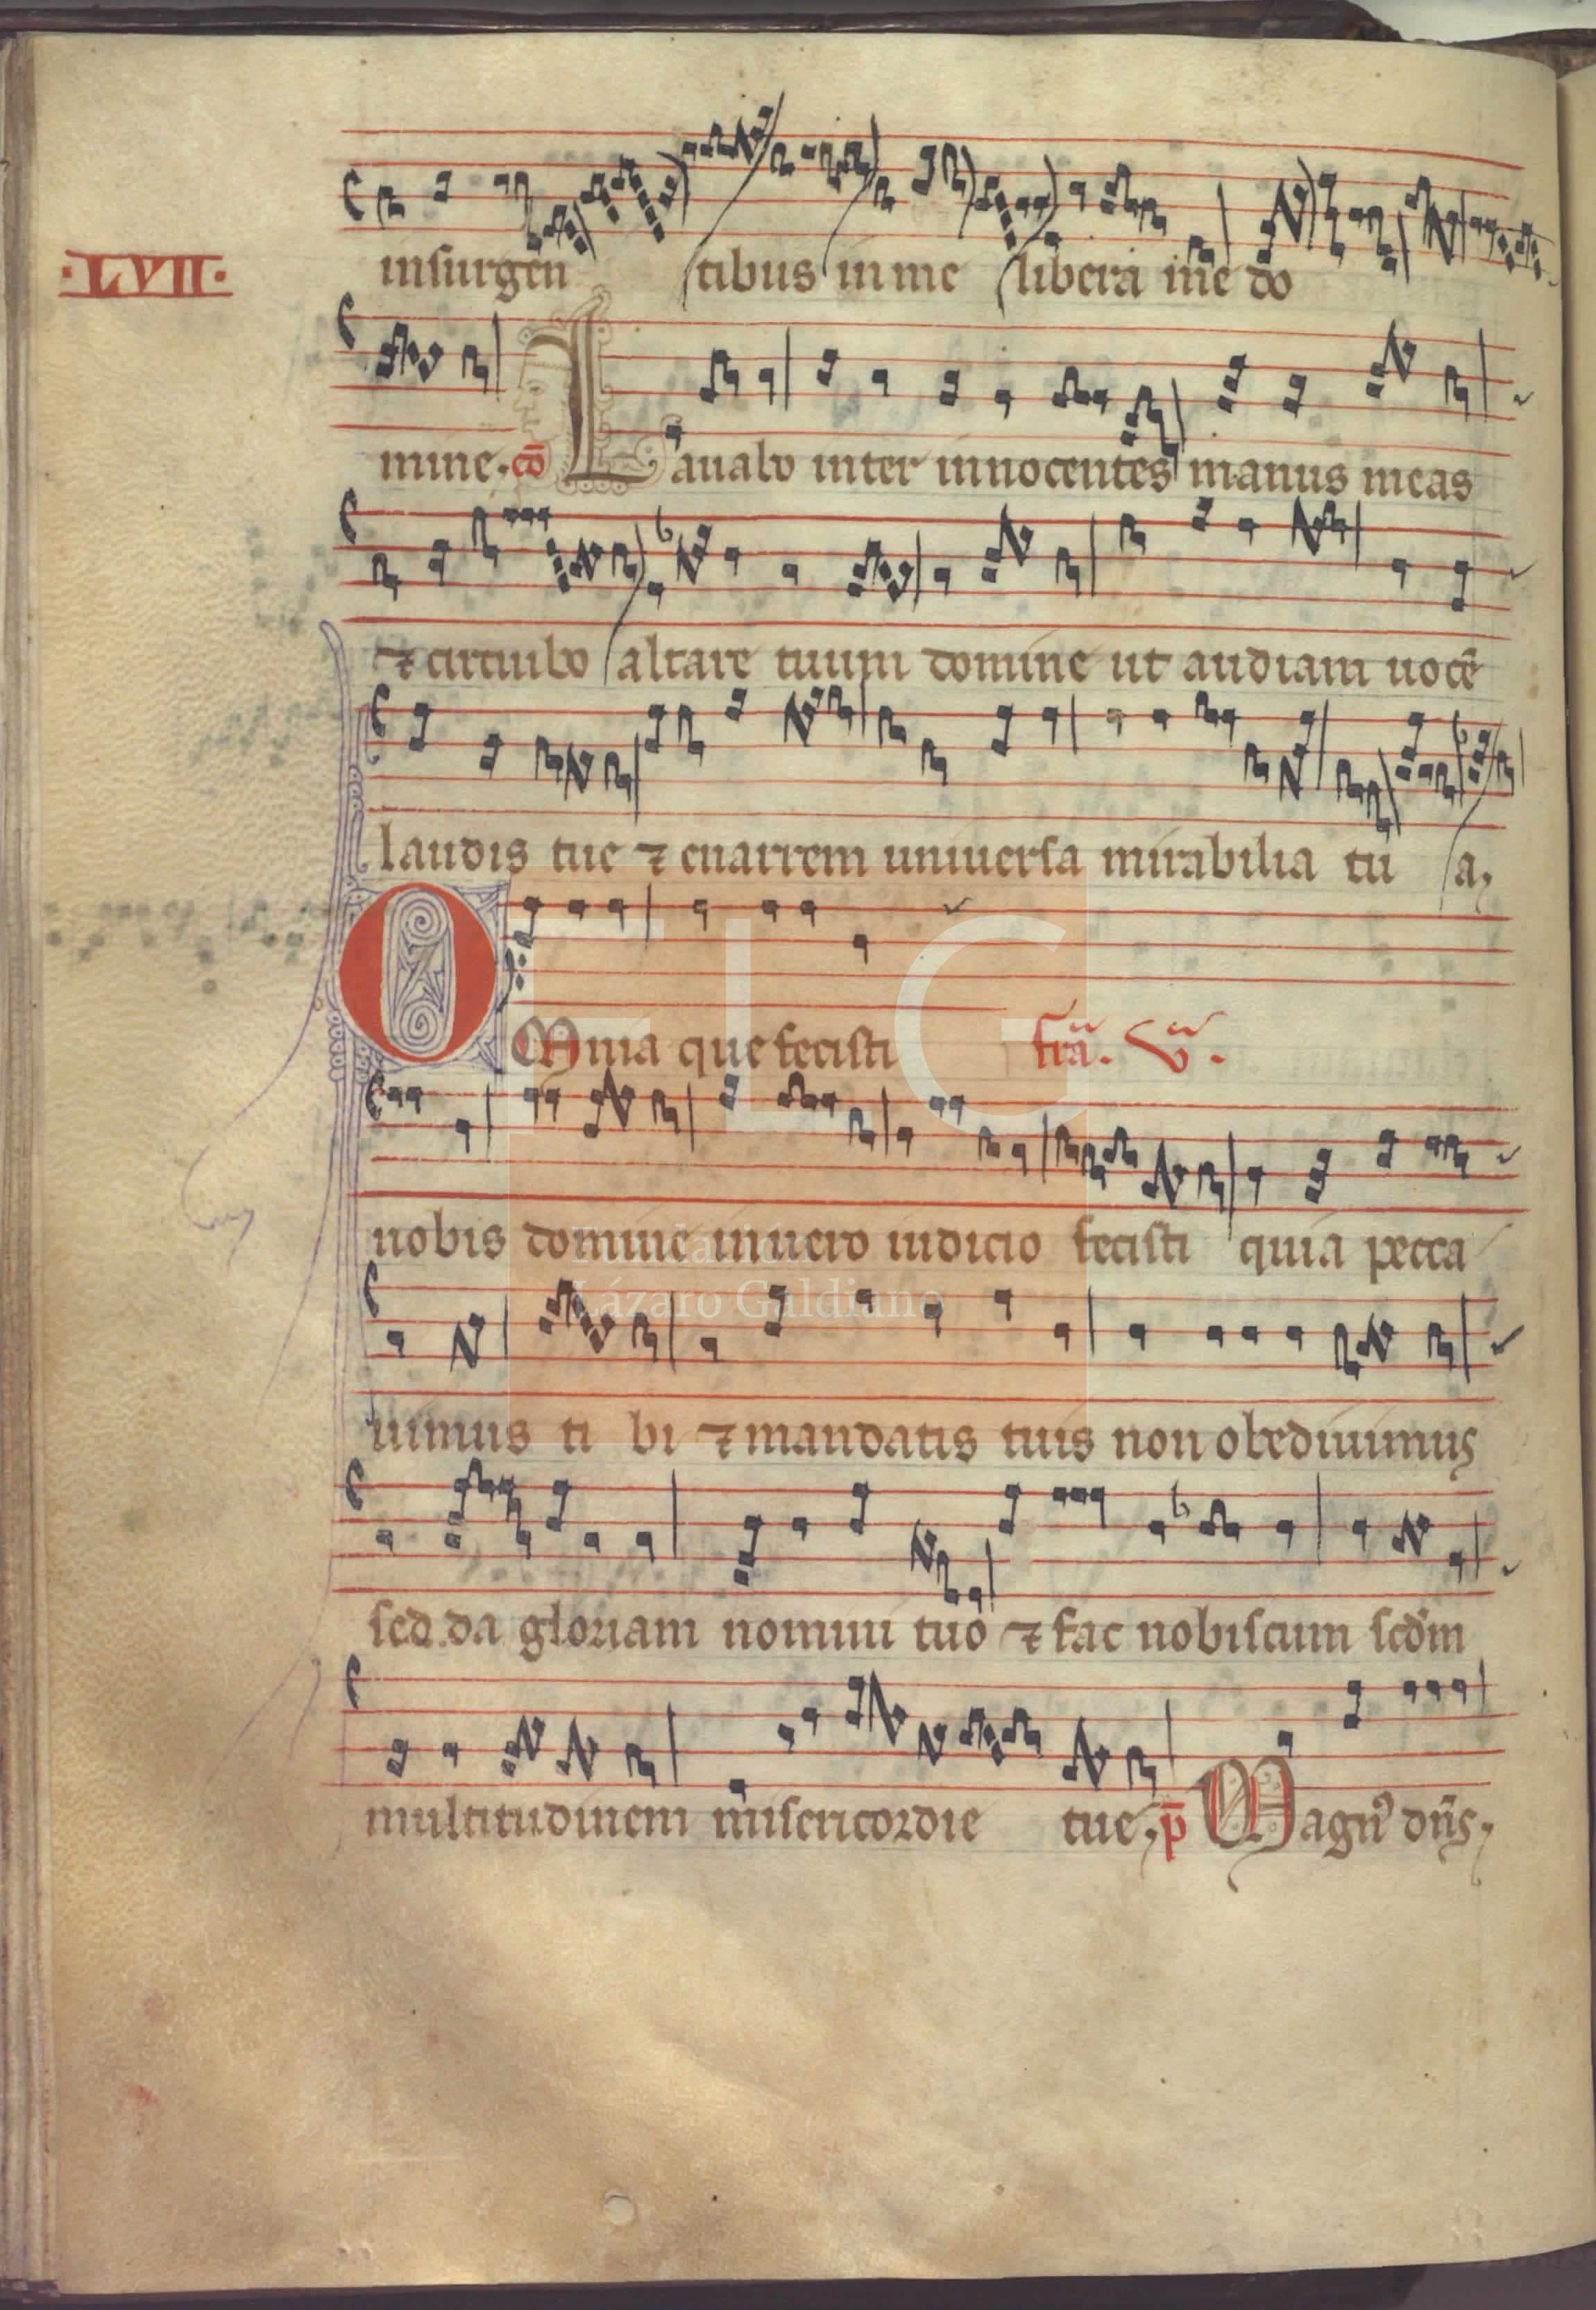 ·LVII·
insurgen tibus in me libera me do
mine. cō Lauabo inter innocentes manus meas
⁊ circuibo altare tuum domine ut audiam uocē
laudis tue ⁊ enarrem uniuersa mirabilia tu a,
OMnia que fecisti fr̄a. V.
nobis domine in uero iudicio fecisti quia pecca
uimus ti bi ⁊ mandatis tuis non obediuimus
sed da gloriam nomini tuo ⁊ fac nobiscum scd̄m
multitudinem misericordie tue, p̄ Magn᷒ dn̄s,
FLG
Fundación
Lázaro Galdiano